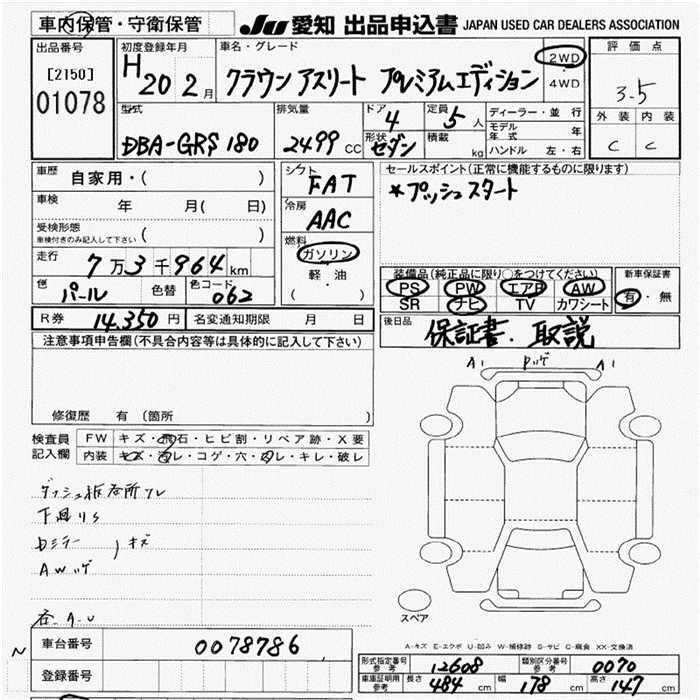 車内保管・守衛保管
JU 愛知 出品申込書 JAPAN USED CAR DEALERS ASSOCIATION
出品番号
[2150]
01078
初度登録年月
H20 2月
車名・グレード
クラウン アスリート プレミアムエディション
2WD
4WD
評価点
3.5
外装 内装
C C
型式
DBA-GRS180
排気量
2499 CC
ドア
4
形状
セダン
定員
5人
積載
kg
ディーラー・並行
モデル年式 年
ハンドル 左・右
車歴
自家用・( )
車検
年 月( 日)
受検形態
車検付きのみ記入して下さい ( )
走行
7万3千964km
色
パール
色替
色コード
062
シフト
FAT
冷房
AAC
燃料
ガソリン
軽・油
( )
セールスポイント(正常に機能するものに限ります)
*プッシュスタート
装備品(純正品に限り○をつけてください)
PS PW エアB AW
SR ナビ TV カワシート
新車保証書
有・無
R券 14,350円
名変通知期限 月 日
後日品
保証書. 取説
注意事項申告欄(不具合内容等は具体的に記入して下さい)
修復歴 有 (箇所 )
検査員記入欄
FW キズ・飛石・ヒビ割・リペア跡・X要
内装 キズ・汚レ・コゲ・穴・スレ・キレ・破レ
A1 A1
下廻りS
Dミラー キズ
AW
各A.U
スペア
A-キズ E-エクボ U-凹み W-補修跡 S-サビ C-腐食 XX-交換済
N
車台番号 0078786
登録番号
形式指定番号 参考 12608
類別区分番号 参考 0070
車庫証明用 参考
長さ 484 cm 幅 178 cm 高さ 147 cm